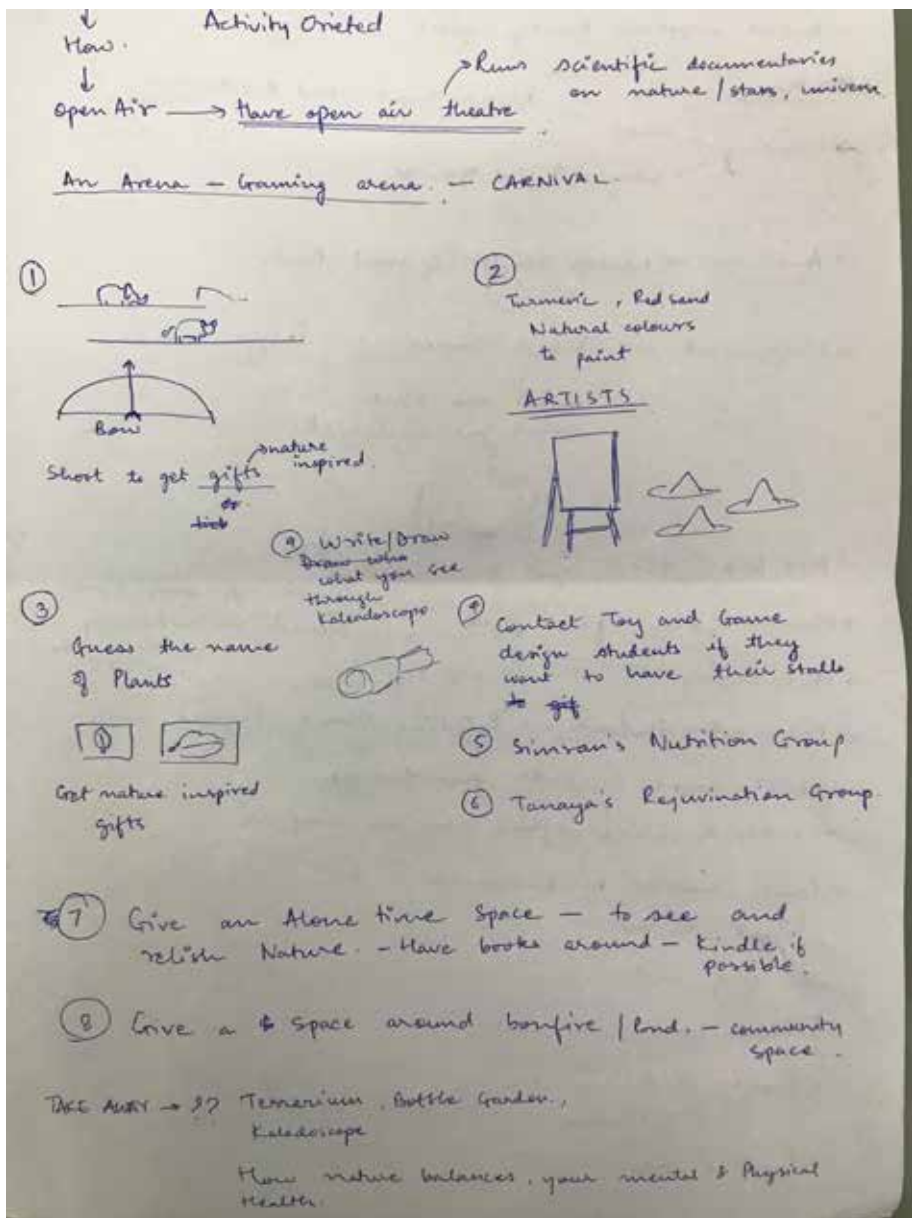 How.
Activity Orieted
Open Air → Have open air theatre
Runs scientific documentaries
on nature/stars, universe
An Arena – Gaming arena. – CARNIVAL.
1
Bow
Shoot to get gifts
nature
inspired.
or
2
Turmeric, Red sand
Natural colours
to paint
ARTISTS
9 Write/Draw
Draw who
what you see
through
Kaleidoscope
3
Guess the name
of Plants
Get nature inspired
gifts
4
Contact Toy and Game
design students if they
want to have their stalls
to gif
5 Simran's Nutrition Group
6 Tanaya's Rejuvination Group
7 Give an Alone time Space – to see and
relish Nature. – Have books around – Kindle if
possible.
8 Give a space around bonfire / Pond. – community
space.
TAKE AWAY → ?? Terrerium, Bottle Garden,
Kaledoscope
How nature balances, your mental & Physical
Health.